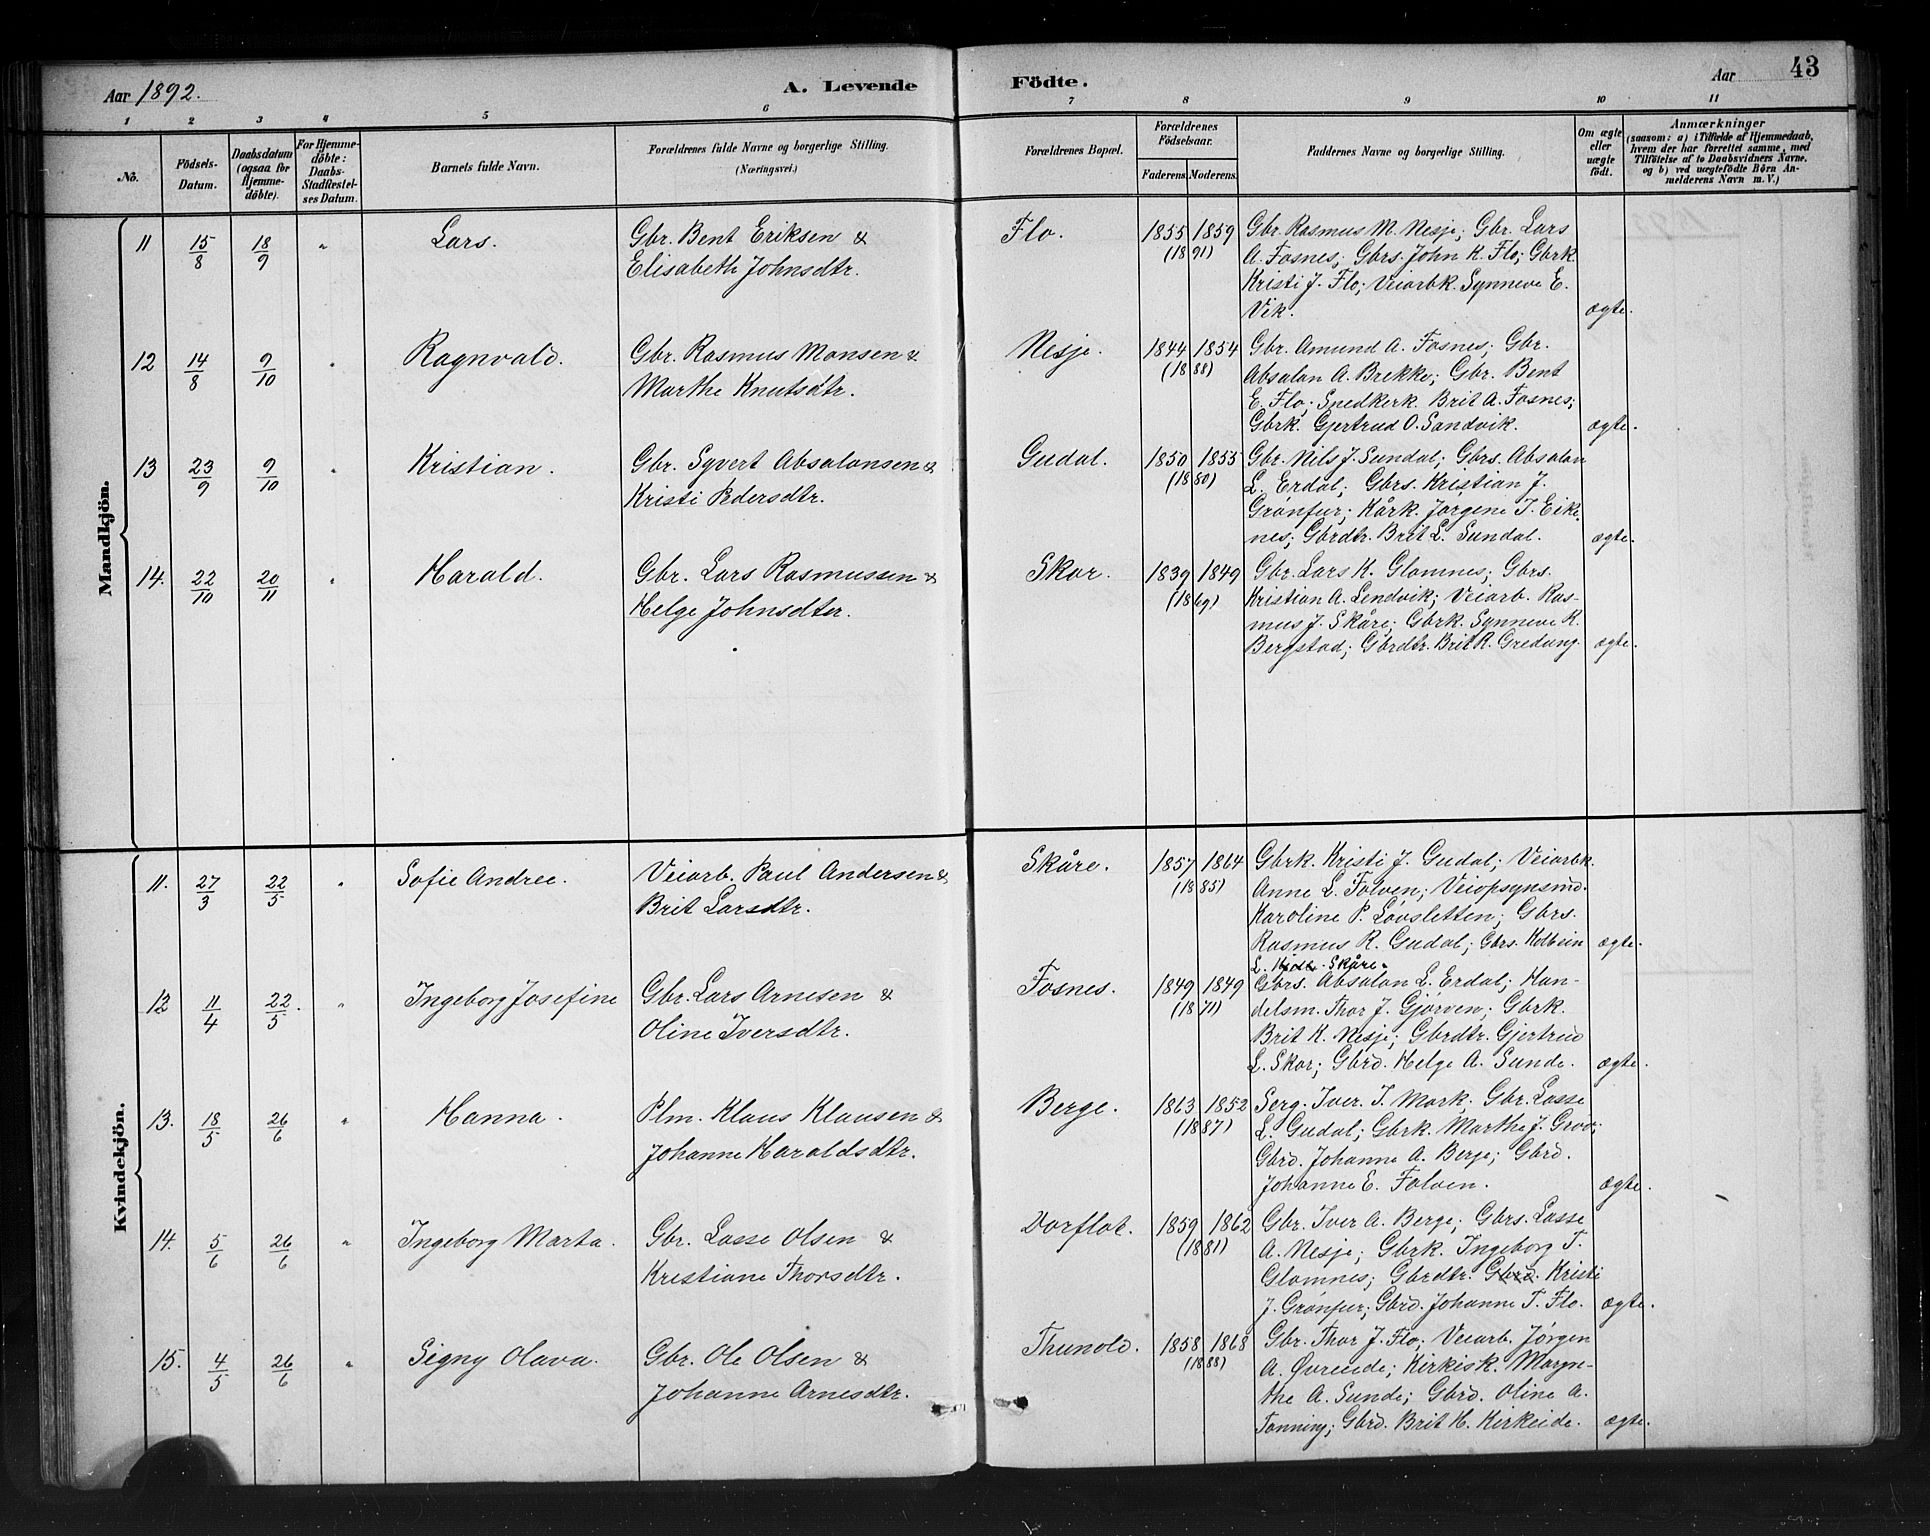 Aar 1892. A. Levende Födte. Aar 43
1 2 3 4 5 6 7 8 9 10 11
No.
Födsels-Datum.
Daabsdatum (ogsaa for Hjemme-döbte).
For Hjemme-döbte: Daabs-Stadfæstel-ses Datum.
Barnets fulde Navn.
Forældrenes fulde Navne og borgerlige Stilling.
(Næringsvei.)
Forældrenes Bopæl.
Forældrenes Födselsaar.
Faderens. Moderens.
Faddernes Navne og borgerlige Stilling.
Om ægte eller uægte födt.
Anmærkninger
(saasom: a) i Tilfælde af Hjemmedaab,
hvem der har forrettet samme, med
Tilföielse af to Daabsvidners Navne,
og b) ved uægtefödte Börn An-
melderens Navn m. V.)
Mandkjön.
11 15/8 18/9 " Lars. Gbr. Bent Eriksen & Flo. 1855 1859 Gbr. Rasmus M. Nesje; Gbr. Lars
Elisabeth Johnsdtr. (1891) A. Fosnes; Gbrs. John K. Flo; Gbrk.
Kristi J. Flo; Veiarbk. Synneve E.
Vik. ægte.
12 14/8 9/10 " Ragnvald. Gbr. Rasmus Monsen & Nesje. 1844 1854 Gbr. Amund A. Fosnes; Gbr.
Marthe Knutsdtr. (1888) Absalon A. Brekke; Gbr. Bent
E. Flo; Snedkerk. Brit A. Fosnes;
Gbrk. Gjertrud O. Sandvik. ægte.
13 23/9 9/10 " Kristian. Gbr. Syvert Absalonsen & Gudal. 1850 1855 Gbr. Nils J. Sundal; Gbrs. Absalon
Kristi Pedersdtr. (1880) L. Erdal; Gbrs. Kristian J.
Grønfur; Kårk. Jørgene T. Eike-
nes; Gbrdtr. Brit L. Sundal. ægte.
14. 22/10 20/11 " Harald. Gbr. Lars Rasmussen & Skor. 1839 1849 Gbr. Lars K. Glomnes; Gbrs.
Helge Johnsdter. (1869) Kristian A. Lendvik; Veiarb. Ras-
mus J. Skåre; Gbrk. Synneve R.
Bergstad; Gbrdtr. Brit R. Gredung. ægte.
Kvindekjön.
11. 27/3 22/5 " Sofie Andree. Veiarb. Paul Andersen & Skåre. 1857 1864 Gbrk. Kristi J. Gudal; Veiarbk.
Brit Larsdtr. (1885) Anne L. Folven; Veiopsynsmd.
Karoline P. Løvsletten; Gbrs.
Rasmus R. Gudal; Gbrs. Kolbein ægte.
L. Skåre.
12 11/4 22/5. " Ingeborg Josefine Gbr. Lars Arnesen & Fosnes. 1849 1849 Gbrs. Absalon L. Erdal; Han-
Oline Iversdtr. (1871) delsm. Thor J. Gjørven; Gbrk.
Brit K. Nesje; Gbrdtr. Gjertrud
L. Skor; Gbrd. Helge A. Sunde. ægte.
13. 18/5 26/6 " Hanna. Plm. Klaus Klausen & Berge. 1863 1852 Serg. Iver T. Mork; Gbr. Lasse
Johanne Haraldsdtr. (1887) L. Gudal; Gbrk. Marthe J. Groo;
Gbrd. Johanne A. Berge; Gbrd.
Johanne E. Folven. ægte.
14. 5/6 26/6 " Ingeborg Marta. Gbr. Lasse Olsen & Dorflot. 1859 1862 Gbr. Iver A. Berge; Gbrs. Lasse
Kristiane Thorsdtr. (1881) A. Nesje; Gbrk. Ingeborg T.
Glomnes; Gbrdtr. Gbrd. Kristi
J. Grønfur; Gbrd. Johanne T. Flo. ægte.
15. 4/5 26/6 " Signy Olava. Gbr. Ole Olsen & Thunold. 1858 1868 Gbr. Thor J. Flo; Veiarb. Jørgen
Johanne Arnesdtr. (1888) A. Øvreeide; Kirkisk. Maryn-
the A. Sunde; Gbrd. Oline A.
Tonning; Gbrd. Brit H. Kirkeide. ægte.